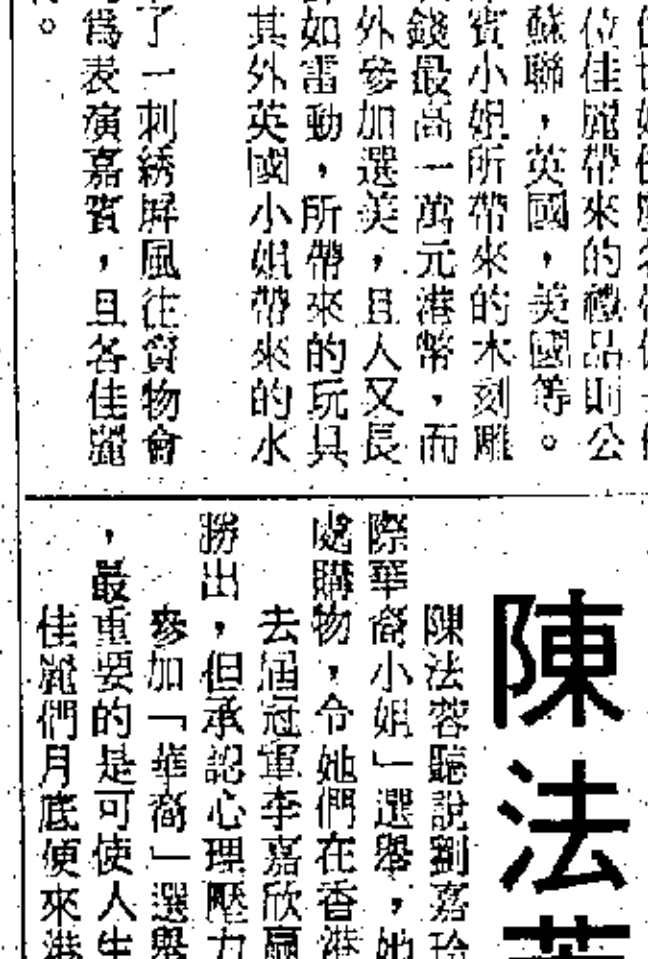 位佳麗帶來的禮品則公
蘇聯，英國，美國等。
賓小姐所帶來的木刻雕
錢最高一萬元港幣，而
外參加選美，且人又長
如雷動，所帶來的玩具
其外英國小姐帶來的水
了一刺綉屏風往賀物會
為表演嘉賓，且各佳麗
。
陳法
陳法蓉聽說劉嘉玲
際華裔小姐」選舉，她
處購物，令她們在香港
去屆冠軍李嘉欣贏
勝出，但承認心理壓力
參加「華裔」選舉
，最重要的是可使人生
佳麗們月底便來港